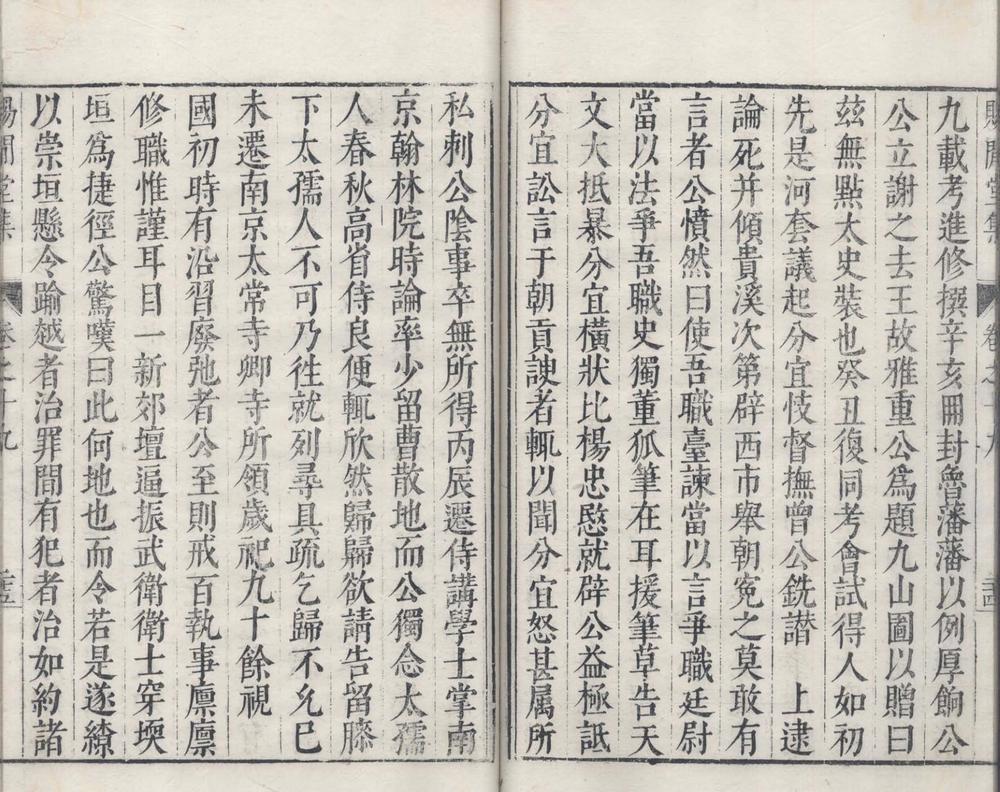 賜閒堂集
卷之十九
九載考進修撰辛亥冊封魯藩藩以例厚餉公
公立謝之去王故雅重公為題九山圖以贈曰
玆無點太史裝也癸丑復同考會試得人如初
先是河套議起分宜忮督撫曾公銑譖　上逮
論死并傾貴溪次第辟西市舉朝寃之莫敢有
言者公憤然曰使吾職臺諫當以言爭職廷尉
當以法爭吾職史獨董狐筆在耳援筆草告天
文大抵暴分宜橫狀比楊忠愍就辟公益極詆
分宜訟言于朝貢諛者輒以聞分宜怒甚属所
私刺公陰事卒無所得丙辰遷侍講學士掌南
京翰林院時論率少留曹散地而公獨念太孺
人春秋高省侍良便輒欣然歸歸欲請告留膝
下太孺人不可乃徃就列尋具疏乞歸不允巳
未遷南京太常寺卿寺所領歲祀九十餘視
國初時有沿習廢弛者公至則戒百執事廪廪
修職惟謹耳目一新郊壇逼振武衛衛士穿堧
垣為捷徑公驚嘆曰此何地也而令若是遂繚
以崇垣懸令踰越者治罪間有犯者治如約諸
賜閒堂集
卷之十九